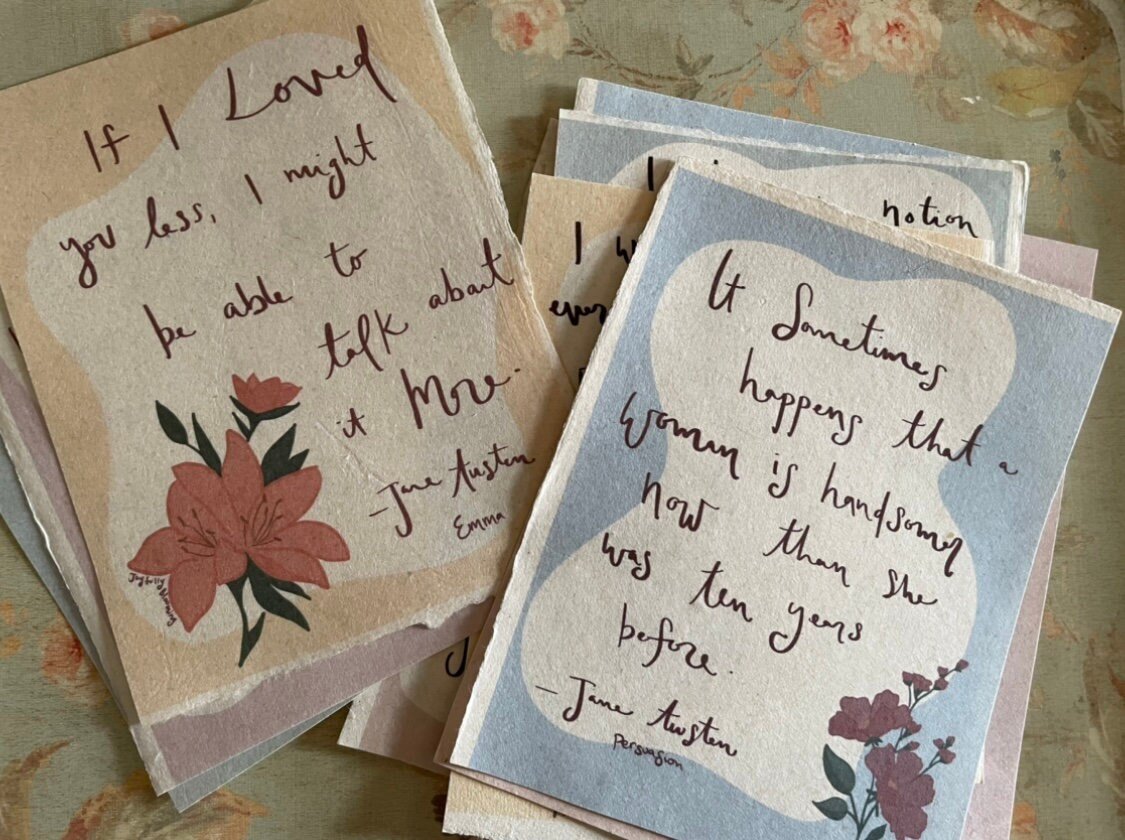 If I Loved
you less, I might
be able to
talk about
it More.
-Jane Austen
Emma
Joyfully Blooming
I
notion
I
It Sometimes
happens that a
woman is handsomer
now than she
was ten years
before.
- Jane Austen
Persuasion